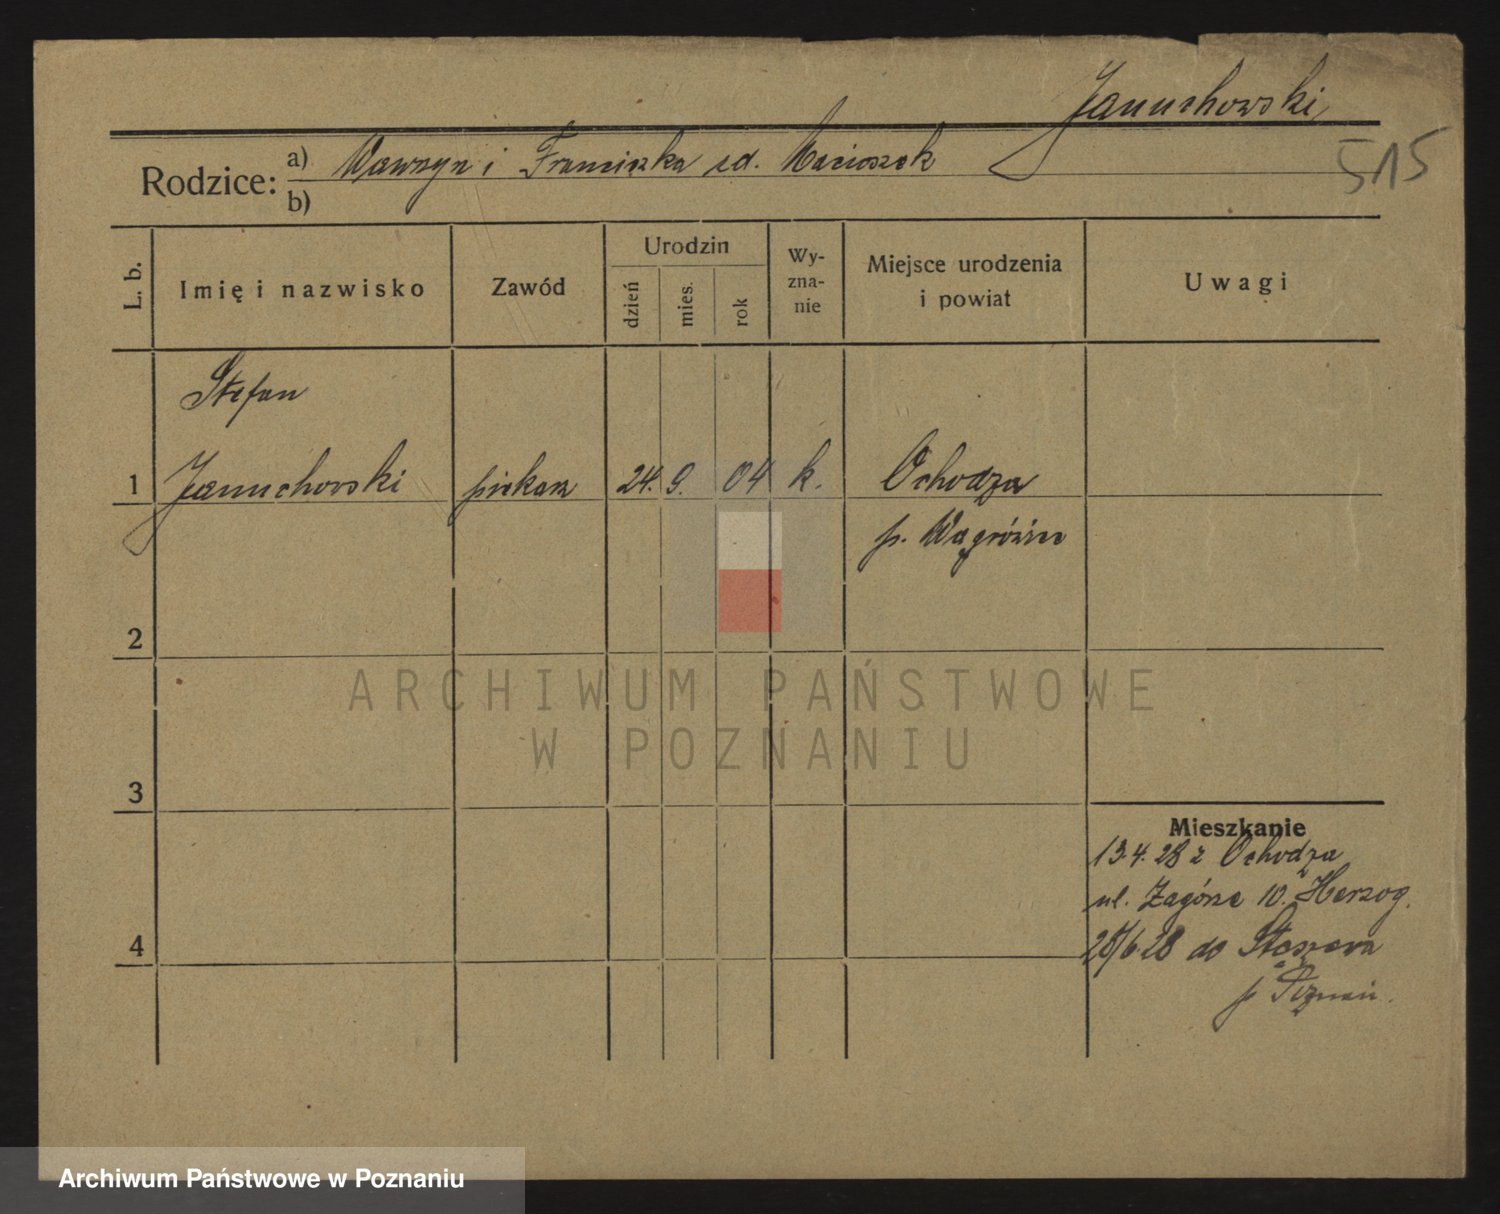 Januchowski
515
Rodzice: a) Wawrzyn i Franciszka zd. Macioszek
b)
L. b.
Imię i nazwisko
Zawód
Urodzin
dzień
mies.
rok
Wy-
zna-
nie
Miejsce urodzenia
i powiat
Uwagi
Stefan
1 Januchowski piekarz 24. 9. 04 k. Ochodza
p. Wągrówiec
2
3
4
Mieszkanie
13.4.28 z Ochodza
ul. Zagórze 10. Herzog.
28/6 28 do Stęszewa
p Poznań.
ARCHIWUM PAŃSTWOWE
W POZNANIU
Archiwum Państwowe w Poznaniu